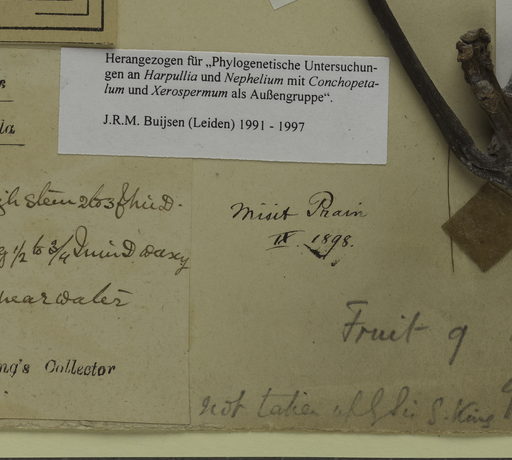 Herangezogen für „Phylogenetische Untersuchun-
gen an Harpullia und Nephelium mit Conchopeta-
lum und Xerospermum als Außengruppe“.
J.R.M. Buijsen (Leiden) 1991 - 1997
stem 2 to 3 f hi D.
1/2 to 3/4 In in D waxy
near water
ng's Collector
misit Prain
IX. 1898.
Fruit q
not taken up by Sir G. King